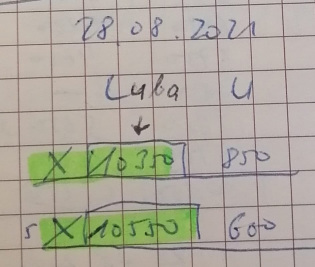 28.08.2021
Luba U
↓
X 10350 850
5 X 10550 600